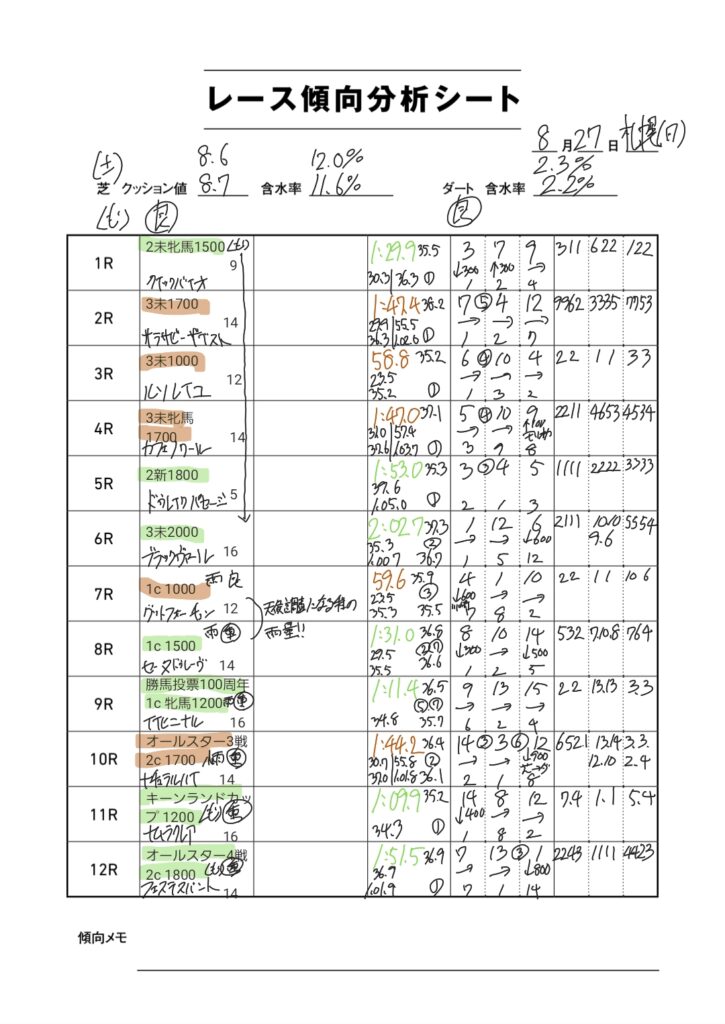 レース傾向分析シート
8月27日 札幌(日)
(土) 8.6 12.0% 2.3%
芝 クッション値 8.7 含水率 11.6% ダート 含水率 2.2%
良 良
1R 2未牝馬1500 9 1:29.9 35.5 3 7 9 311 622 122
↓300 ↑300 →
30.3/36.3 ① 1 2 4
2R 3未1700 14 1:47.4 38.2 7 ⑤ 4 12 9962 3335 7753
→ → →
① 1 2 7
3R 3未1000 12 58.8 35.2 6 ④ 10 4 22 11 33
23.5 → → →
ルソレイユ 35.2 ① 1 3 2
4R 3未牝馬 1:47.0 37.1 5 ④ 10 9 2211 4653 4534
1700 14 → →
カフェノワール ① 3 9 8
5R 2新1800 5 1:53.0 35.3 3 ③ 4 5 1111 2222 3333
37.6
1.05.0 ① 2 1 3
6R 3未2000 2:02.7 37.3 1 12 6 2111 10.10 5554
35.3 ② → → ↓600 9.6
ブラックヴォール 16 36.7 1 5 12
7R 1c 1000 雨 良 59.6 35.9 4 1 10 22 11 10 6
23.5 ③ ↓600 → →
グットフォーチュン 12 35.3 35.5 7 8 2
雨量!!
8R 1c 1500 雨 重 1:31.0 36.8 8 10 14 532 7.10.8 764
29.5 ↓300 → ↓500
14 35.5 36.6 1 2 5
9R 勝馬投票100周年 1:11.4 36.5 9 13 15 22 13.13 3.3
1c 牝馬1200 重 ⑤⑦ → → →
16 34.8 35.7 6 2 4
10R オールスター3戦 1:44.2 36.4 14 ② 3 ⑥ 12 6521 13.14 3.3.
2c 1700 重 30.7/55.8 ② → → ↓900 12.10 2.4
ナチュラルハイ 14 37.0 1.01.8 36.1 2 1 8
11R キーンランドカッ 1:09.9 35.2 14 8 12 7.4 1.1 5.4
プ1200 重 ↓400 → →
ナムラクレア 16 34.3 ① 1 8 2
12R オールスター4戦 1:51.5 36.9 7 13 ③ 1 2243 1111 4423
2c 1800 重 36.7 → → ↓800
フェステスバント 14 1.01.9 ① 7 1 14
傾向メモ